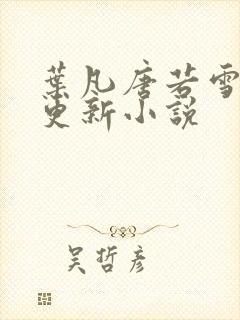 葉凡唐若雪
更新小說
吴哲彦